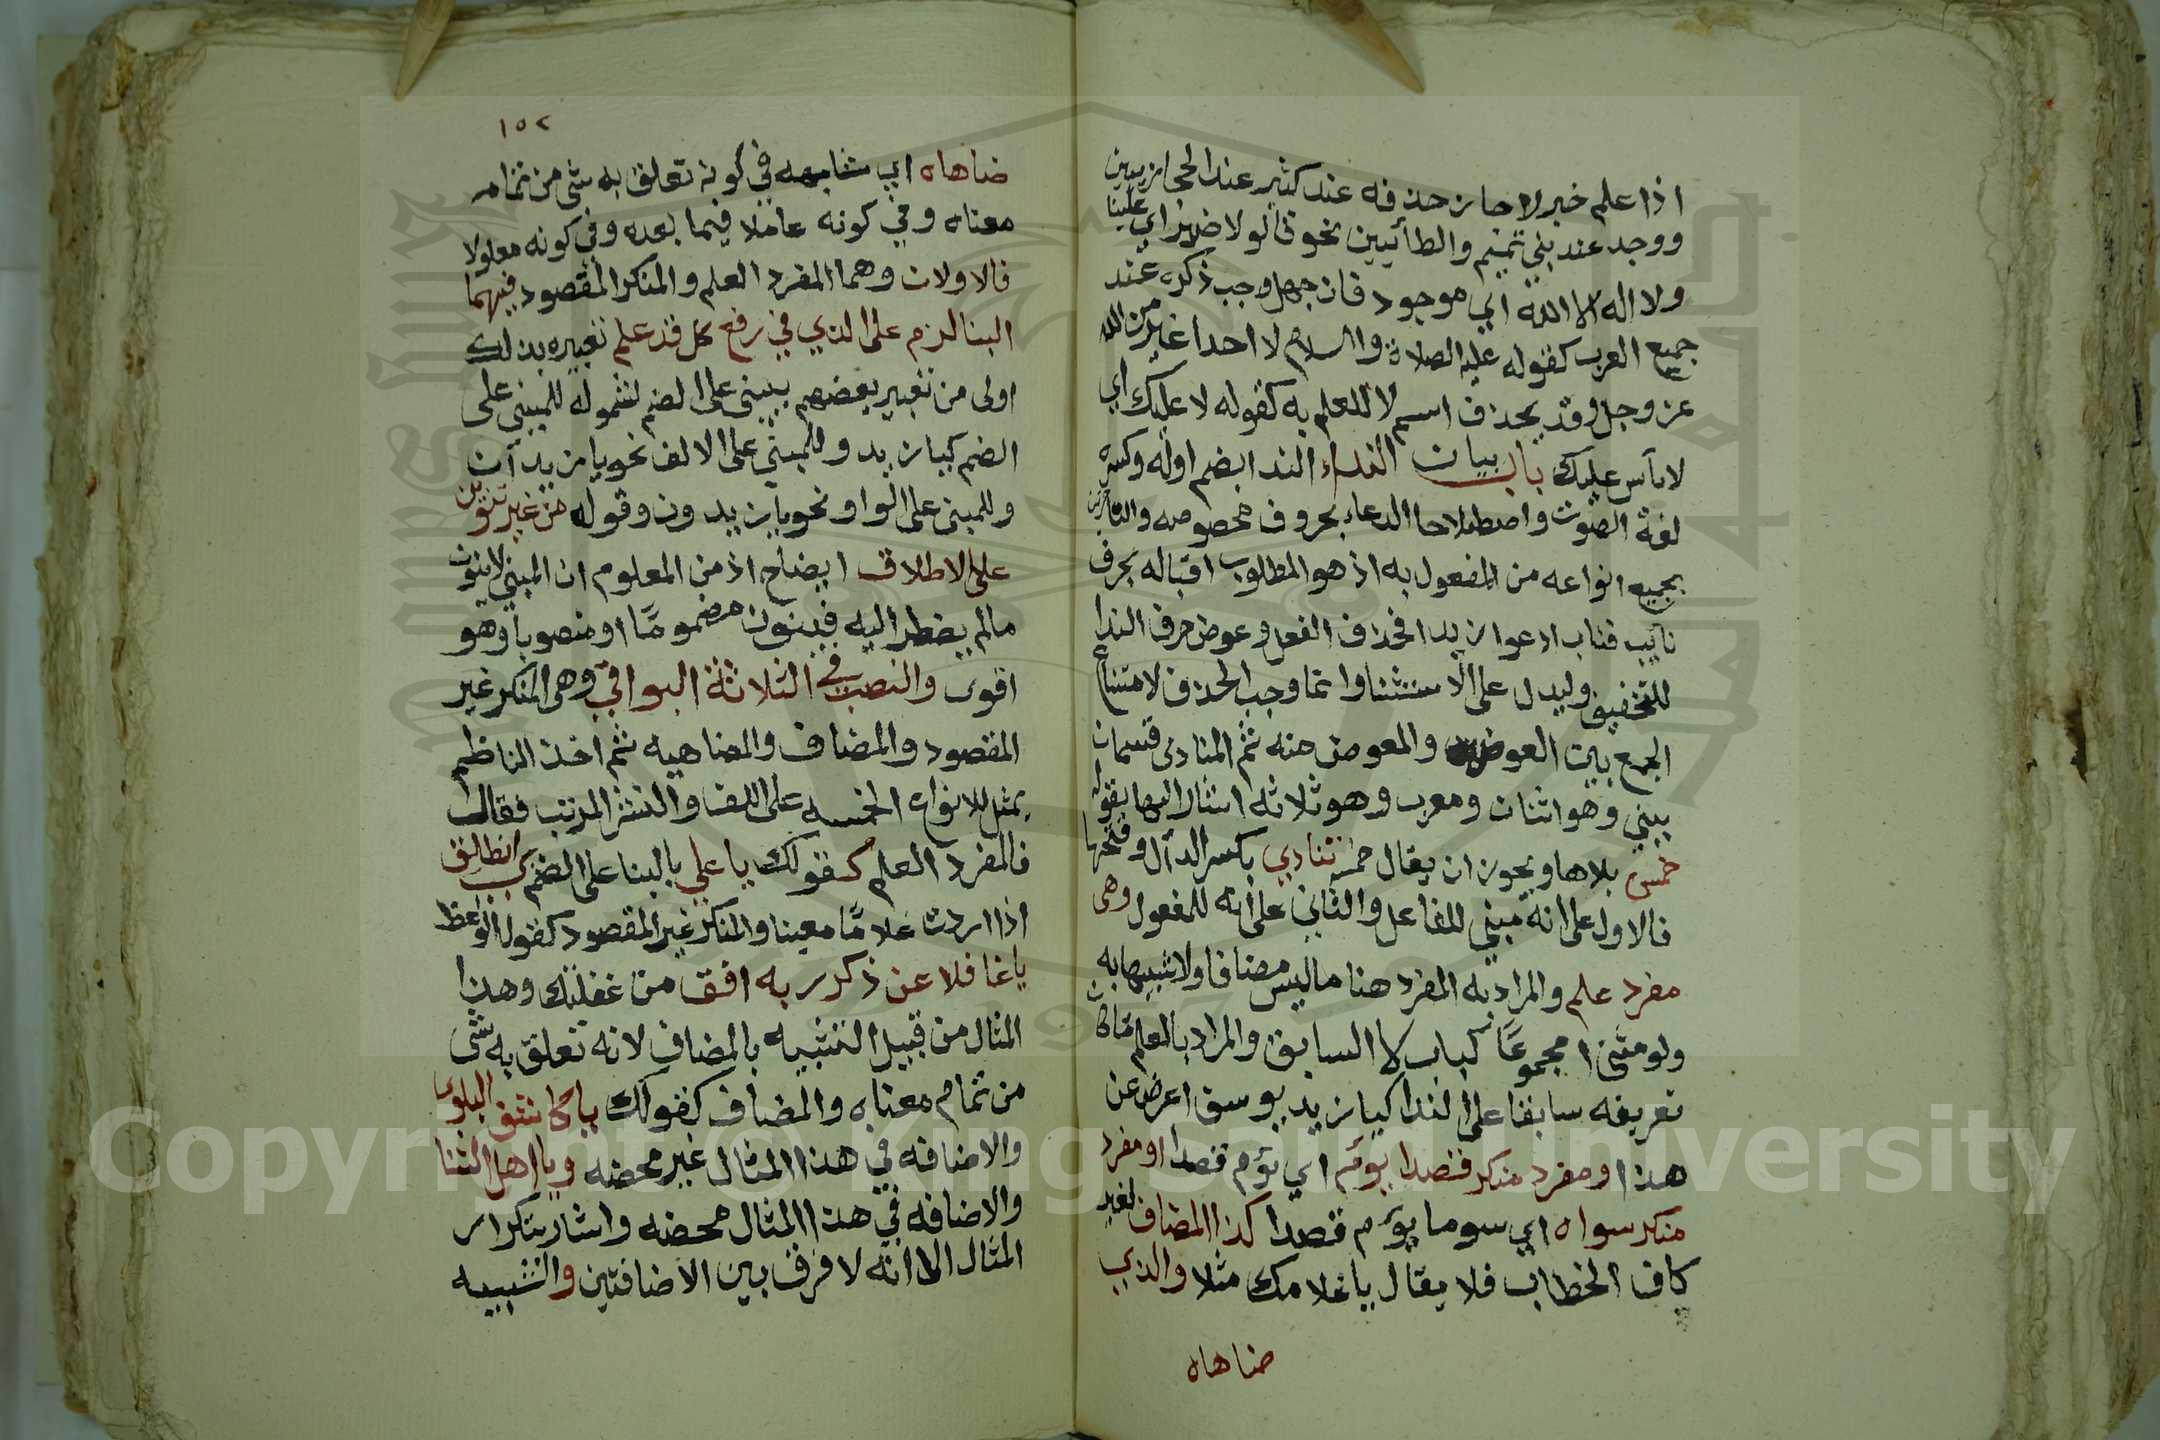 اذا علم خبر لا جاز حذفه عند كثير عند الحجازيين
ووجد عند بني تميم والطائيين نحو قالوا لا ضير اي علينا
ولا اله الا الله اي موجود فان جهل وجب ذكره عند
جميع العرب كقوله عليه الصلاة والسلام لا احدا غير من الله
عز وجل وقد يحذف اسم لا للعلم به كقوله لا عليك اي
لا باس عليك باب بيان النداء الندا بضم اوله وكسره
لغة الصوت واصطلاحا الدعاء بحروف مخصوصه والمنادى
بجميع انواعه من المفعول به اذ هو المطلوب اقباله بحرف
نايب مناب ادعوا زيدا فحذف الفعل وعوض حرف الندا
للتخفيف وليدل على الاستثنا وانما وجب الحذف لامتناع
الجمع بين العوض والمعوض منه ثم المنادى قسمان
مبني وهو اثنان ومعرب وهو ثلاثه اشار اليها بقوله
خمس بلاها ويجوز ان يقال خمس تنادي بكسر الدال وفتحها
فالاول على انه مبني للفاعل والثاني على انه للمفعول وهى
مفرد علم والمراد به المفرد هنا ما ليس مضافا ولا شبيها به
ولو مثنى او مجموعا كباب لا السابق والمراد بالعلم ما كان
تعريفه سابقا على الندا كيا زيد يوسف اعرض عن
هذا او مفرد منكر قصدا يوم اي يوم قصدا او مفرد
منكر سواه اي سوما يوم قصدا كذا المضاف لغير
كاف الخطاب فلا يقال يا غلامك مثلا والذي
ضاهاه
١٥٢
ضاهاه اي مشابهه في كونه تعلق به شى من تمام
معناه وفي كونه عاملا فيما بعده وفي كونه معلولا
فالاولان وهما المفرد العلم والمنكر المقصود فيهما
البنا لزم على الذي في رفع كل قد علم تعبيره بذلك
اولى من تعبير بعضهم ببني على الضم لشموله للمبني على
الضم كيا زيد وللمبني على الالف نحو يا زيدان
وللمبنى على الواو نحو يا زيدون وقوله من غير تنوين
على الاطلاق ايضاح اذ من المعلوم ان المبني لا ينون
مالم يضطر اليه فينون مضموما او منصوبا وهو
اقوى والنصب في الثلاثة البواقي وهى المنكر غير
المقصود والمضاف والمضاهيه ثم اخذ الناظم
يمثل للانواع الخمسه على اللف والنشر المرتب فقال
فالمفرد العلم كقولك يا علي بالبنا على الضم يا راكب انطلق
اذا اردت غلاما معينا والمنكر غير المقصود كقول الواعظ
يا غافلا عن ذكر ربه افق من غفلتك وهذا
المثال من قبيل التشبيه بالمضاف لانه تعلق به شى
من تمام معناه والمضاف كقولك يا كاشف البلوى
والاضافه في هذا المثال غير محضه ويا اهل الثنا
والاضافه في هذا المثال محضه واشار بتكرار
المثال الى انه لا فرق بين الاضافتين والشبيه
Copyright © King Saud University